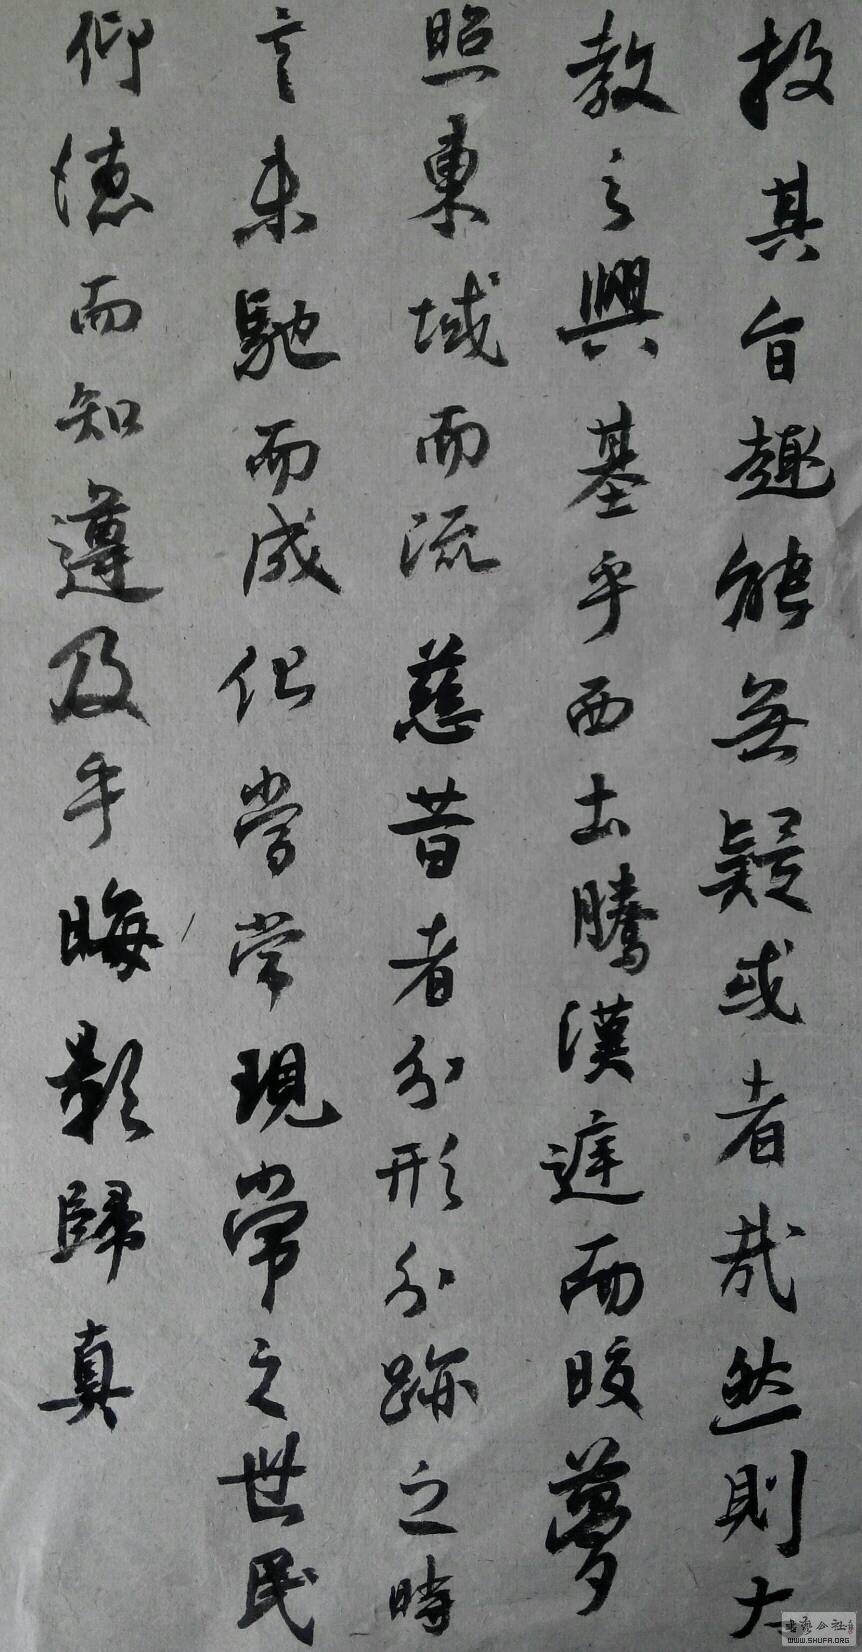 投其旨趣能無疑或者哉然則大
教之興基乎西土騰漢庭而晈夢
照東域而流慈昔者分形分跡之時
言未馳而成化當常現常之世民
仰德而知遵及乎晦影歸真
书法公社
WWW.SHUFA.ORG